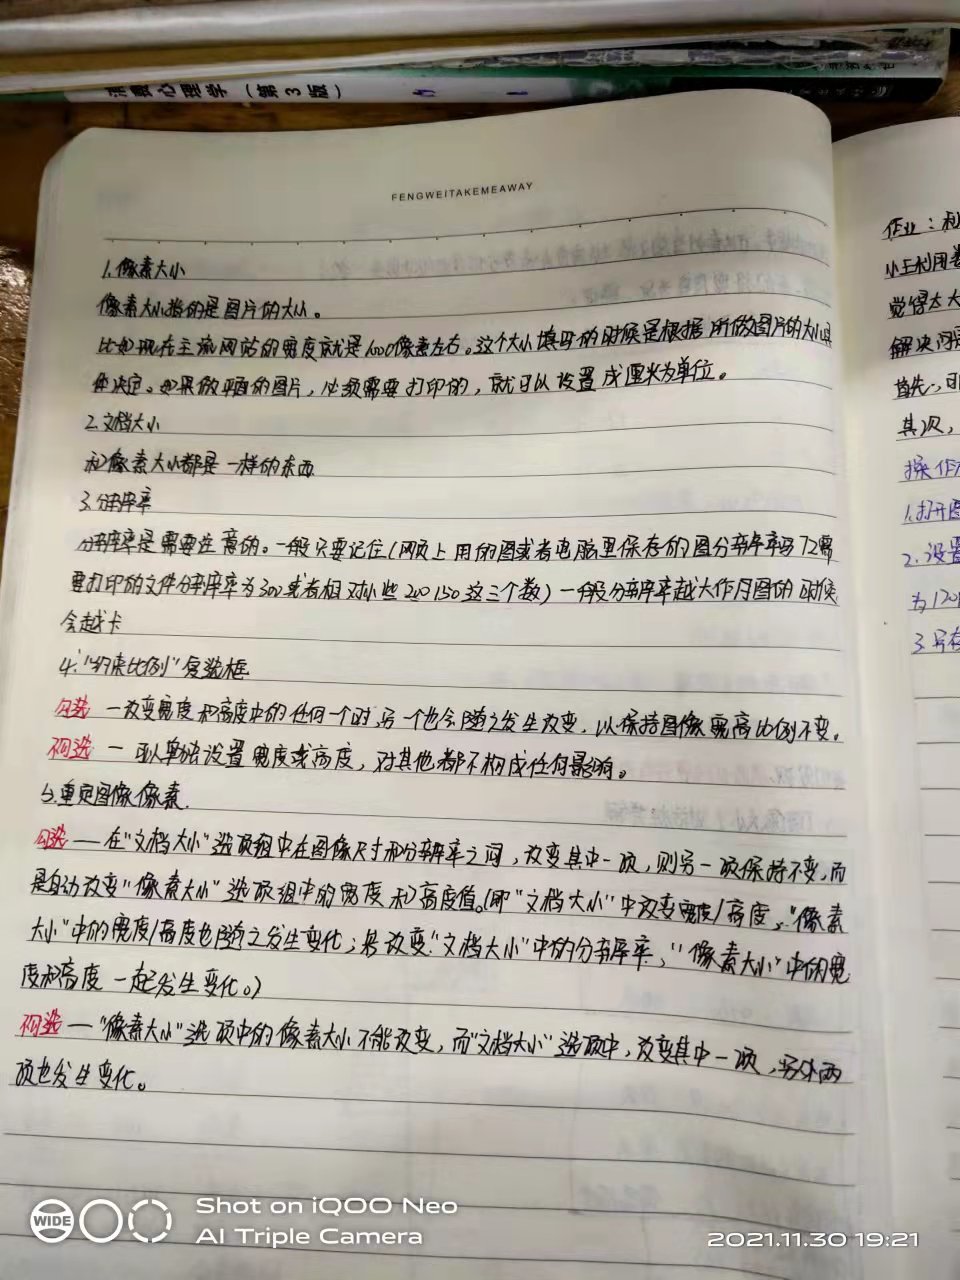 消费心理学（第3版）
FENGWEITAKEMEAWAY
1.像素大小
像素大小指的是图片的大小。
比如现在主流网站的宽度就是1600像素左右。这个大小填写的时候是根据所做图片的大小具
体决定。如果做平面的图片，必须需要打印的，就可以设置成厘米为单位。
2.文档大小
和像素大小都是一样的东西
3.分辨率
分辨率是需要注意的。一般只要记住（网页上用的图或者电脑里保存的图分辨率写72需
要打印的文件分辨率为300或者相对小些200 150这三个数）一般分辨率越大作用图的时候
会越卡
4."约束比例"复选框
勾选 一改变宽度和高度中的任何一个时，另一个也会随之发生改变，以保持图像宽高比例不变。
不勾选 一 可以单独设置宽度或高度，对其他都不构成任何影响。
5.重定图像像素.
勾选 — 在"文档大小"选项组中在图像尺寸和分辨率之间，改变其中一项，则另一项保持不变，而
是自动改变"像素大小"选项组中的宽度和高度值。（即"文档大小"中改变宽度/高度，"像素
大小"中的宽度/高度也随之发生变化；若改变"文档大小"中的分辨率，"像素大小"中的宽
度和高度一起发生变化。）
不勾选 — "像素大小"选项中的像素大小不能改变，而"文档大小"选项中，改变其中一项，另外两
项也发生变化。
作业：利
小王利用
觉得太大
解决问题
首先，可
其次，
操作
1.打开图
2.设置
为120
3.另存
WIDE
Shot on iQOO Neo
AI Triple Camera
2021.11.30 19:21